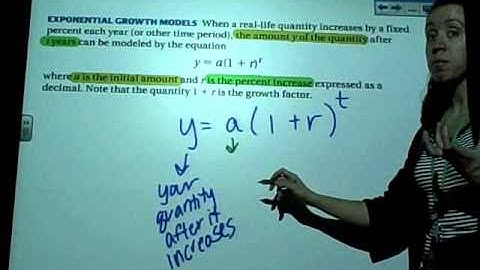 EXPONENTIAL GROWTH MODELS When a real-life quantity increases by a fixed
percent each year (or other time period), the amount y of the quantity after
t years can be modeled by the equation
y = a(1 + r)^t
where a is the initial amount and r is the percent increase expressed as a
decimal. Note that the quantity 1 + r is the growth factor.
y = a(1+r)^t
your
quantity
after it
increases